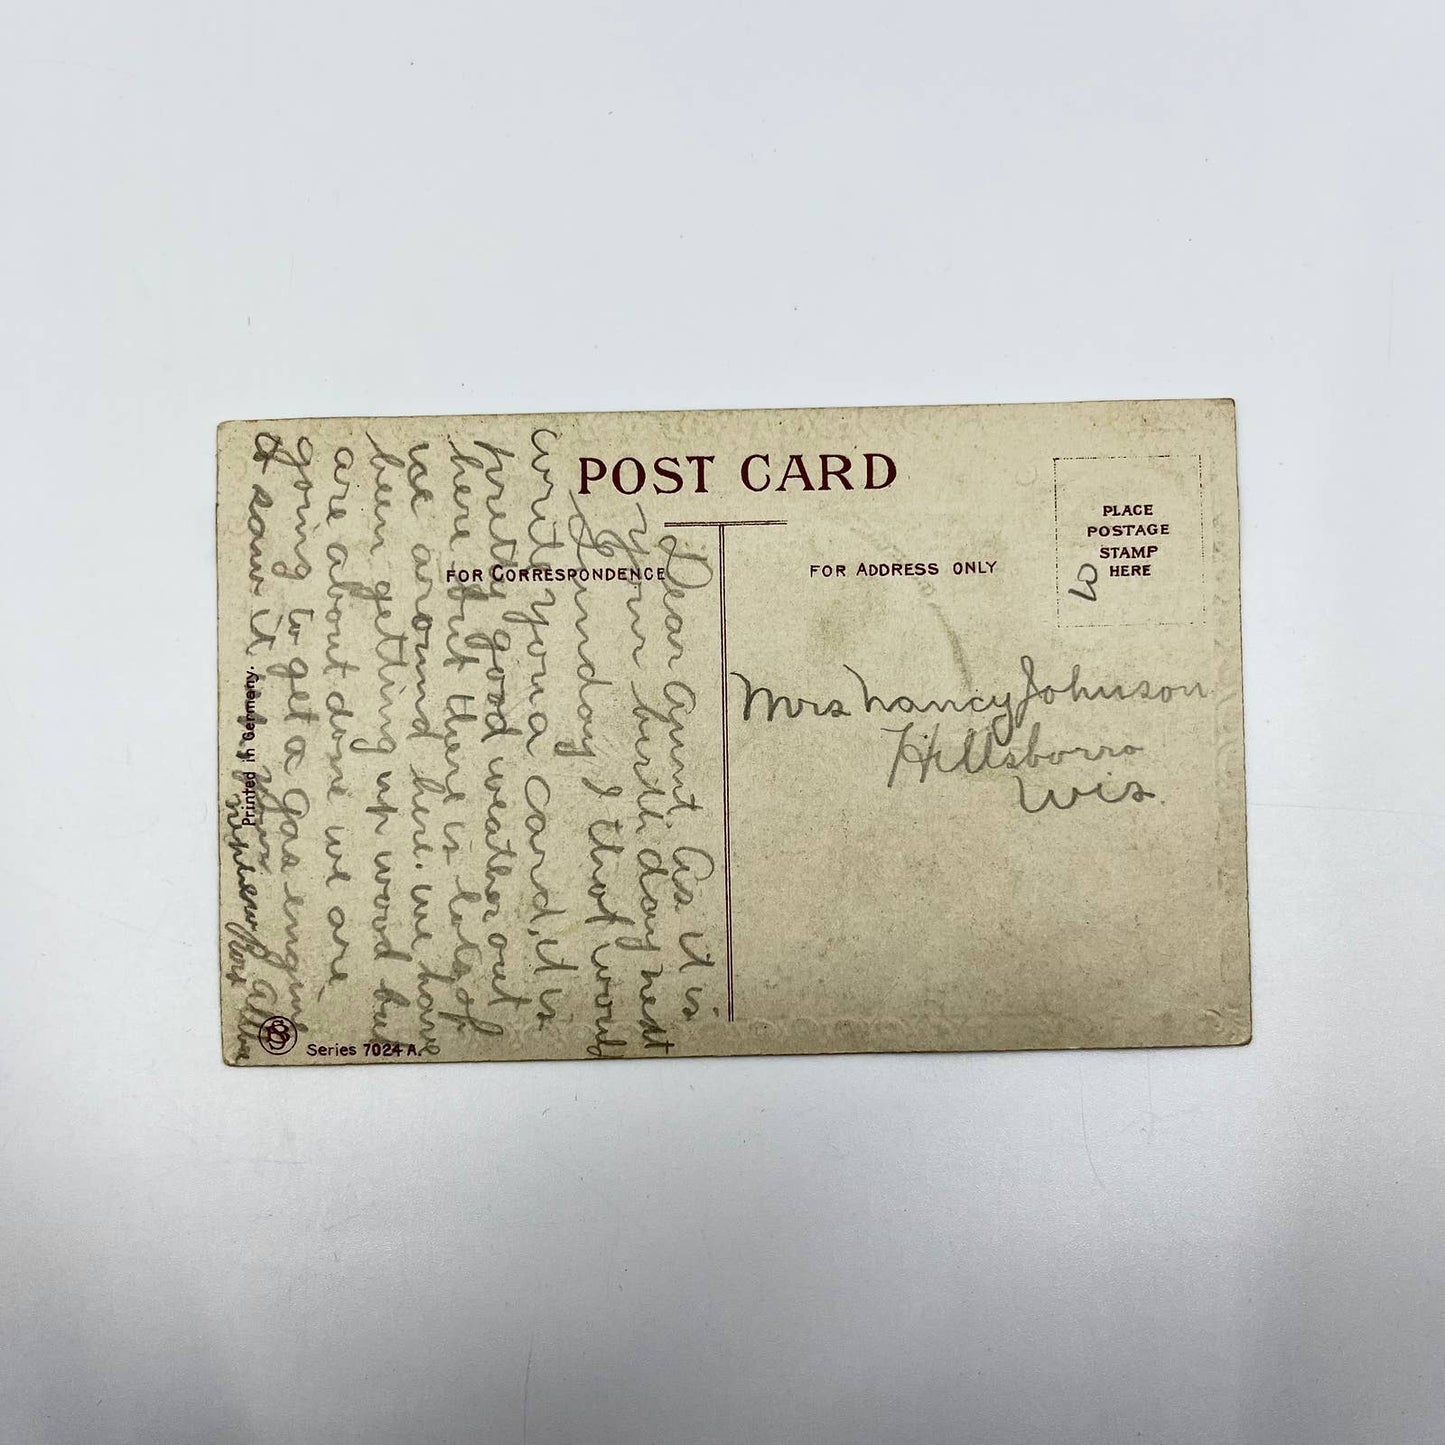 POST CARD
FOR CORRESPONDENCE
FOR ADDRESS ONLY
PLACE
POSTAGE
STAMP
HERE
Mrs Nancy Johnson
Hillsborro
Wis.
Dear Aunt: As it is
Your birth day next
Sunday I thot would
write You a Card, it is
pretty good weather out
here but there is lots of
ice around here. We have
been getting up wood but
are about done we are
going to get a Gas engine
to saw it
Your
nephew
Printed in Germany.
Series 7024 A.